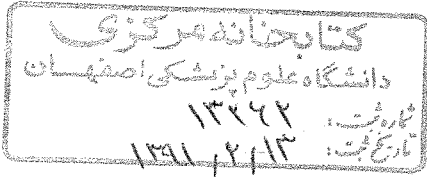 کتابخانه مرکزی
دانشگاه علوم پزشکی اصفهان
شماره ثبت: ۱۳۲۶۲
تاریخ ثبت: ۱۳۹۱/۲/۱۳